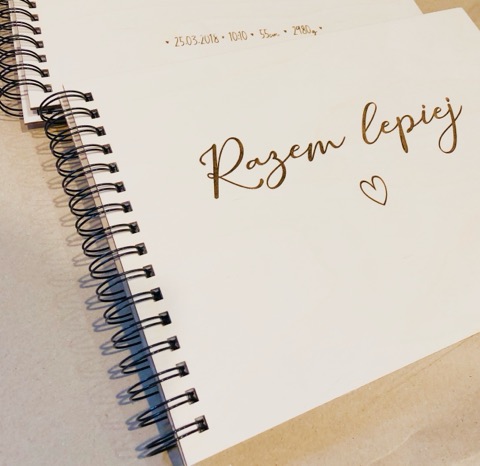 • 25.03.2018 • 10:10 • 55cm • 2980g •
Razem lepiej